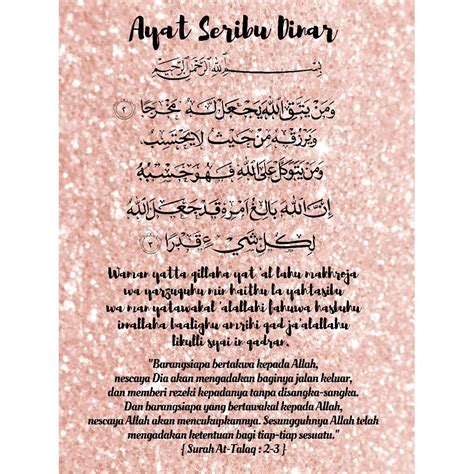 Ayat Seribu Dinar
بِسْمِ اللهِ الرَّحْمٰنِ الرَّحِيْمِ
وَمَنْ يَتَّقِ اللهَ يَجْعَلْ لَهُ مَخْرَجًا ﴿٢﴾
وَيَرْزُقْهُ مِنْ حَيْثُ لَا يَحْتَسِبُ
وَمَنْ يَتَوَكَّلْ عَلَى اللهِ فَهُوَ حَسْبُهُ
إِنَّ اللهَ بَالِغُ أَمْرِهِ قَدْ جَعَلَ اللهُ
لِكُلِّ شَيْءٍ قَدْرًا ﴿٣﴾
Waman yatta qillaha yat 'al lahu makhroja
wa yarzuquhu min haithu la yahtasibu
wa man yatawakal 'alallahi fahuwa hasbuhu
innallaha baalighu amrihi qad ja'alallahu
likulli syai in qadran.
"Barangsiapa bertakwa kepada Allah,
nescaya Dia akan mengadakan baginya jalan keluar,
dan memberi rezeki kepadanya tanpa disangka-sangka.
Dan barangsiapa yang bertawakal kepada Allah,
nescaya Allah akan mencukupkannya. Sesungguhnya Allah telah
mengadakan ketentuan bagi tiap-tiap sesuatu."
{ Surah At-Talaq : 2-3 }